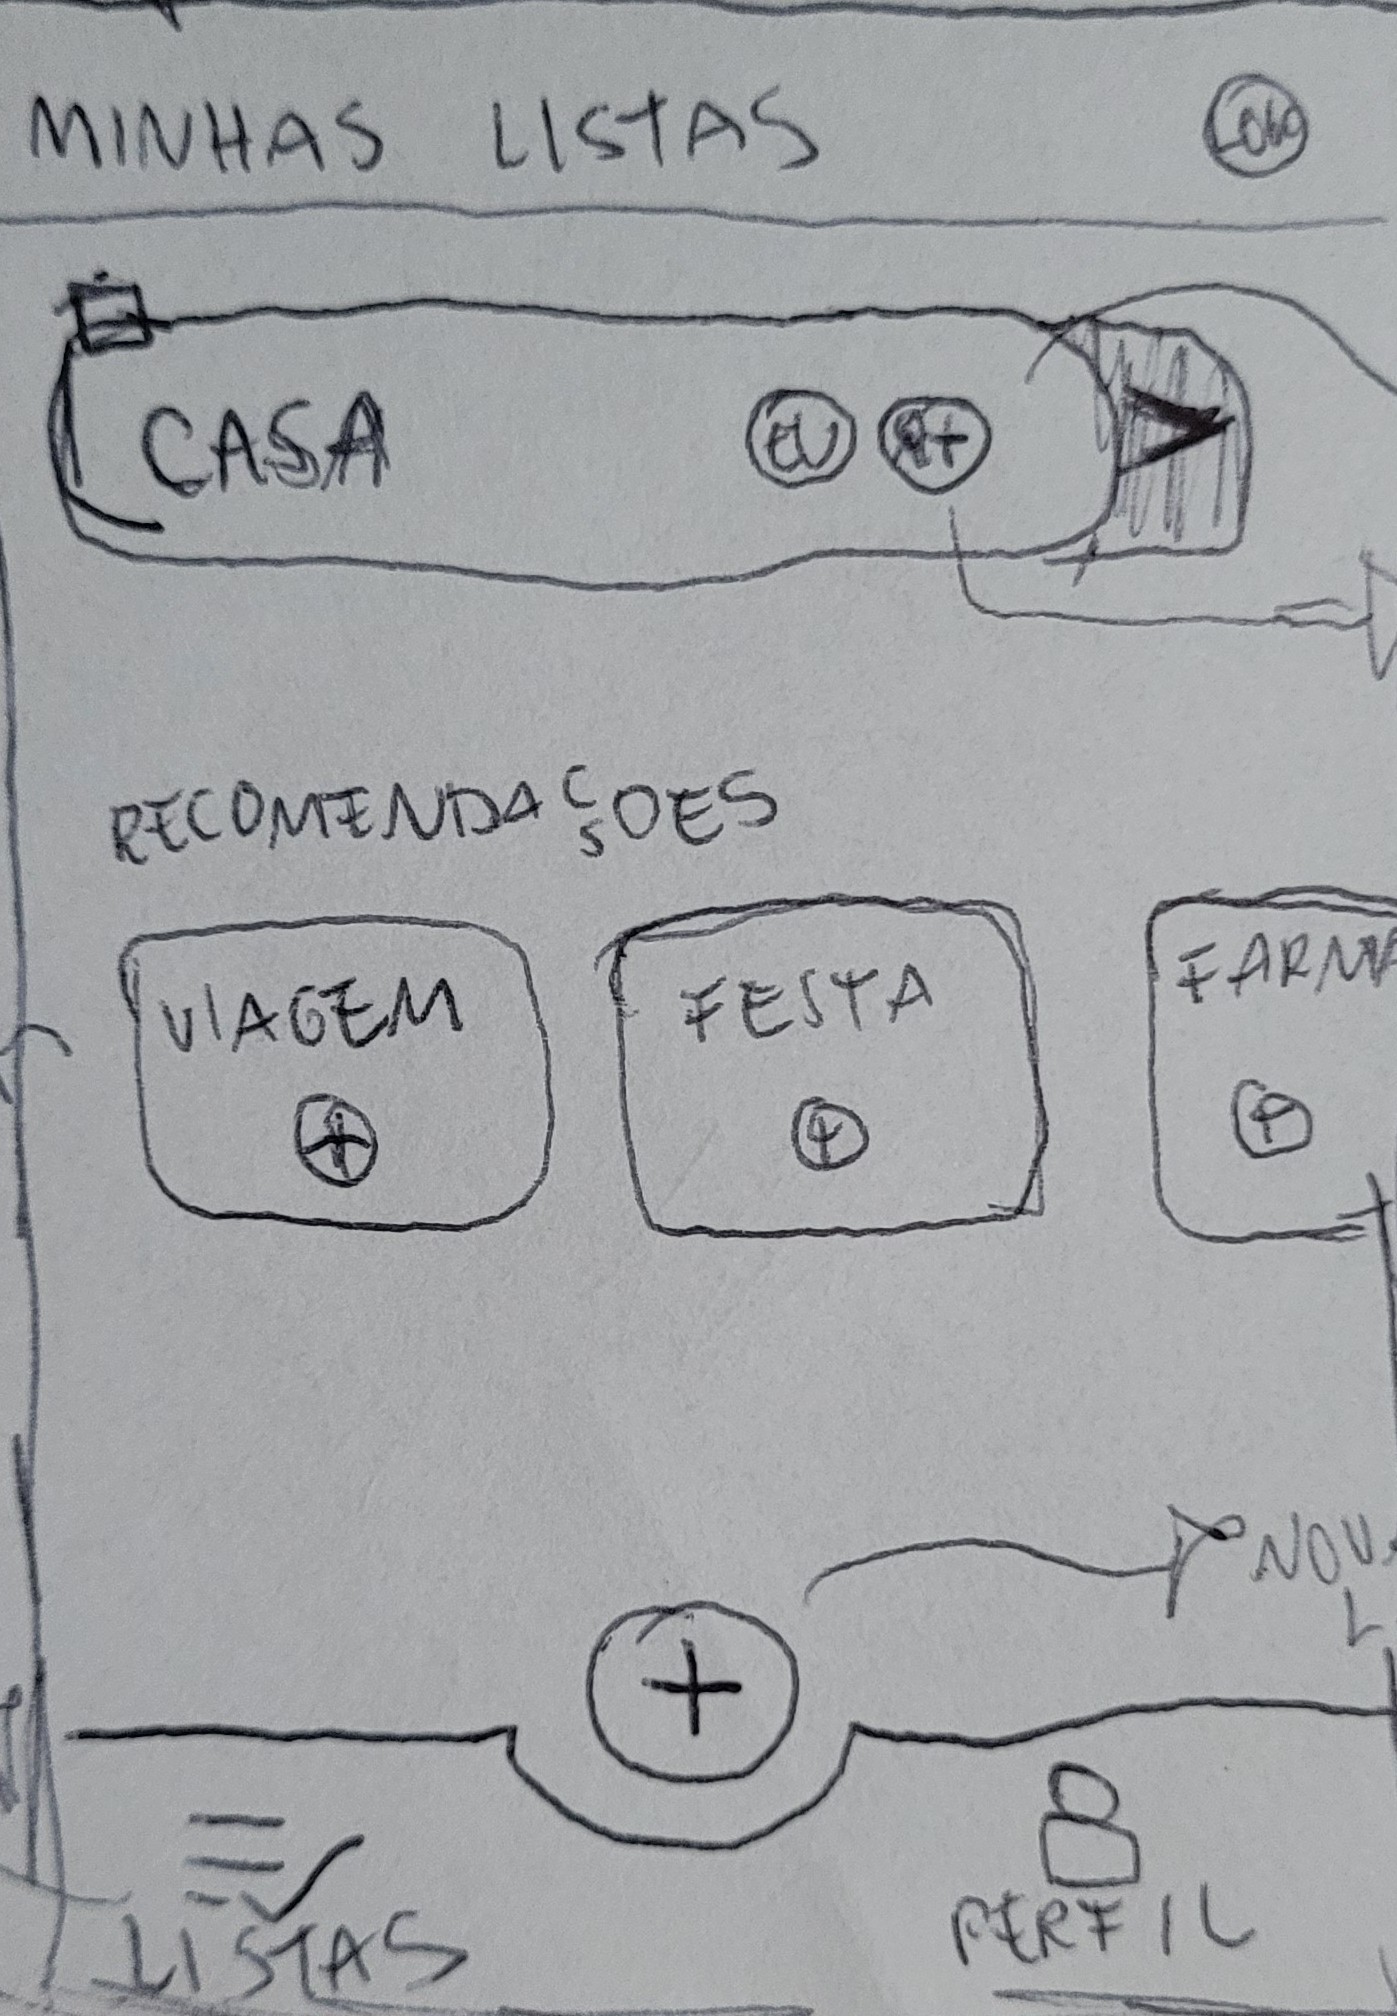 MINHAS LISTAS LOGO
CASA EU +
RECOMENDAÇÕES
VIAGEM FESTA FARMA
+ + +
NOV
L
+
LISTAS PERFIL